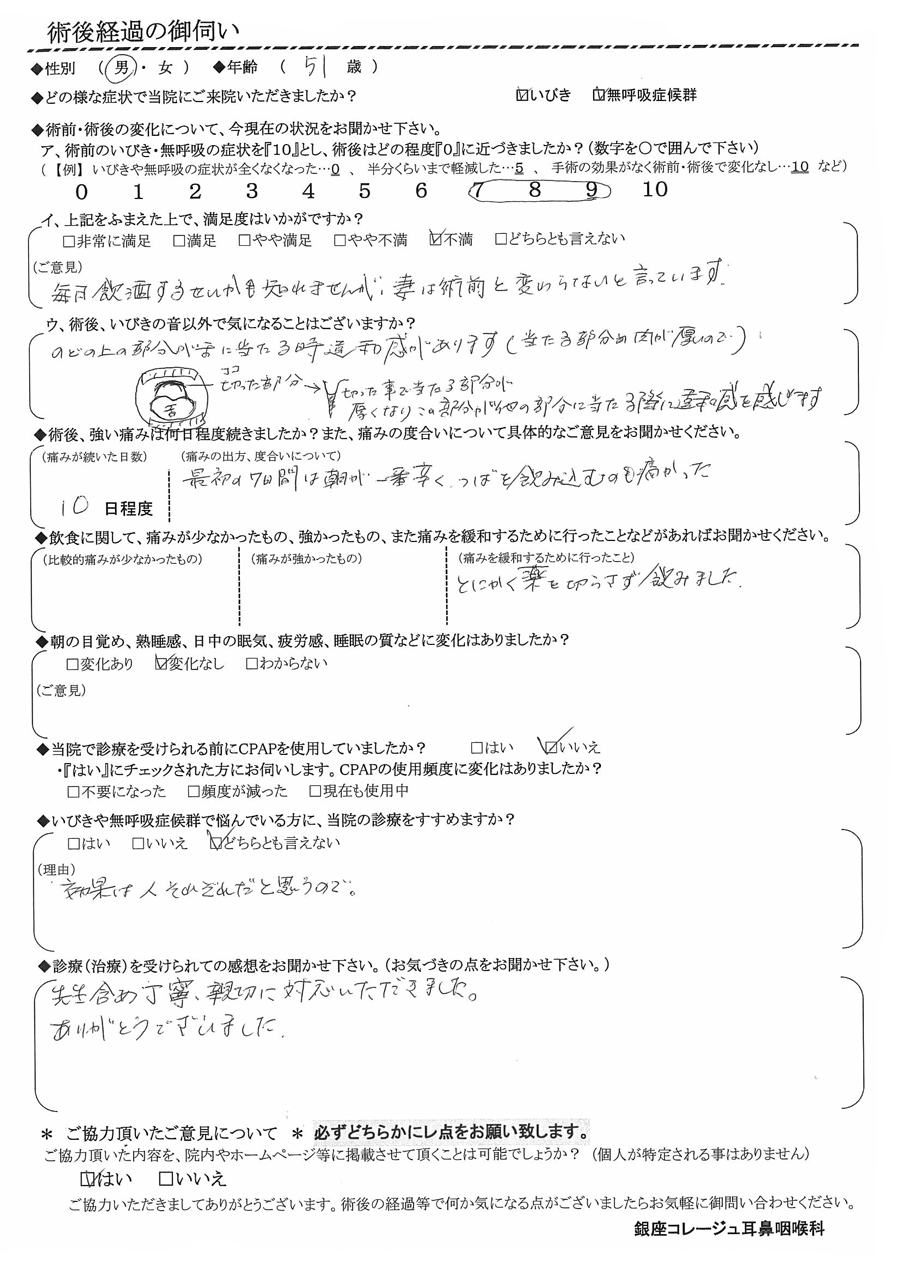 術後経過の御伺い
◆性別 （ 男 ・ 女 ） ◆年齢 （ 51 歳 ）
◆どの様な症状で当院にご来院いただきましたか？ ☑いびき ☑無呼吸症候群
◆術前・術後の変化について、今現在の状況をお聞かせ下さい。
ア、術前のいびき・無呼吸の症状を『10』とし、術後はどの程度『0』に近づきましたか？（数字を○で囲んで下さい）
（【例】 いびきや無呼吸の症状が全くなくなった…0 、 半分くらいまで軽減した…5 、 手術の効果がなく術前・術後で変化なし…10 など）
0 1 2 3 4 5 6 7 8 9 10
イ、上記をふまえた上で、満足度はいかがですか？
□非常に満足 □満足 □やや満足 □やや不満 ☑不満 □どちらとも言えない
（ご意見）
毎日飲酒するせいかも知れませんが、妻は術前と変わらないと言っています。
ウ、術後、いびきの音以外で気になることはございますか？
のどの上の部分が舌に当たる時違和感があります（当たる部分の肉が厚いので）
ココ
切った部分
舌
切った事で当たる部分が
厚くなりこの部分が他の部分に当たる際に違和感を感じます
◆術後、強い痛みは何日程度続きましたか？また、痛みの度合いについて具体的なご意見をお聞かせください。
（痛みが続いた日数） （痛みの出方、度合いについて）
最初の7日間は朝が一番辛く、つばを飲み込むのも痛かった
10 日程度
◆飲食に関して、痛みが少なかったもの、強かったもの、また痛みを緩和するために行ったことなどがあればお聞かせください。
（比較的痛みが少なかったもの） （痛みが強かったもの） （痛みを緩和するために行ったこと）
とにかく薬を切らさず飲みました。
◆朝の目覚め、熟睡感、日中の眠気、疲労感、睡眠の質などに変化はありましたか？
□変化あり ☑変化なし □わからない
（ご意見）
◆当院で診療を受けられる前にCPAPを使用していましたか？ □はい ☑いいえ
・『はい』にチェックされた方にお伺いします。CPAPの使用頻度に変化はありましたか？
□不要になった □頻度が減った □現在も使用中
◆いびきや無呼吸症候群で悩んでいる方に、当院の診療をすすめますか？
□はい □いいえ ☑どちらとも言えない
（理由）
効果は人それぞれだと思うので。
◆診療（治療）を受けられての感想をお聞かせ下さい。（お気づきの点をお聞かせ下さい。）
先生含め丁寧、親切に対応いただきました。
ありがとうございました。
＊ ご協力頂いたご意見について ＊ 必ずどちらかにレ点をお願い致します。
ご協力頂いた内容を、院内やホームページ等に掲載させて頂くことは可能でしょうか？ （個人が特定される事はありません）
☑はい □いいえ
ご協力いただきましてありがとうございます。術後の経過等で何か気になる点がございましたらお気軽に御問い合わせください。
銀座コレージュ耳鼻咽喉科